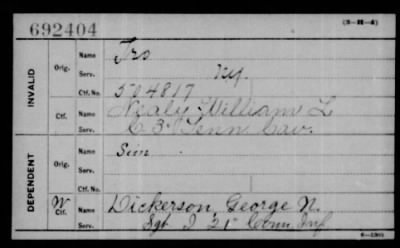 692404
(3-H-4)
INVALID
Orig.
Name
Trs
Serv.
Ky.
Ctf. No.
504817
Ctf.
Name
Nealy William L
Serv.
C 3" Tenn Cav.
DEPENDENT
Orig.
Name
Sim
Serv.
Ctf. No.
W
Ctf.
Name
Dickerson, George N.
Serv.
Sgt I 21" Conn Inf